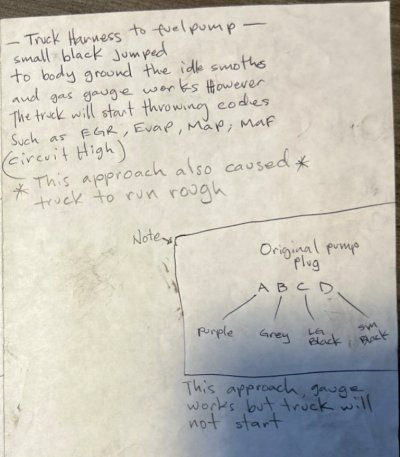 - Truck Harness to fuel pump -
small black jumped
to body ground the idle smoths
and gas gauge works However
The truck will start throwing codes
Such as EGR, Evap, Map, Maf
(Circuit High)
* This approach also caused *
truck to run rough
Note
Original pump
plug
A B C D
Purple Grey LG Black, SM Black
This approach, gauge
works but truck will
not start